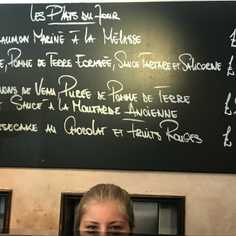 Les Plats du Jour
Saumon Mariné à la Mélasse £
Pomme de Terre Écrasée, Sauce Tartare et Salicorne £
de Veau, Purée de Pomme de Terre £
Sauce à la Moutarde Ancienne
au Chocolat et Fruits Rouges £